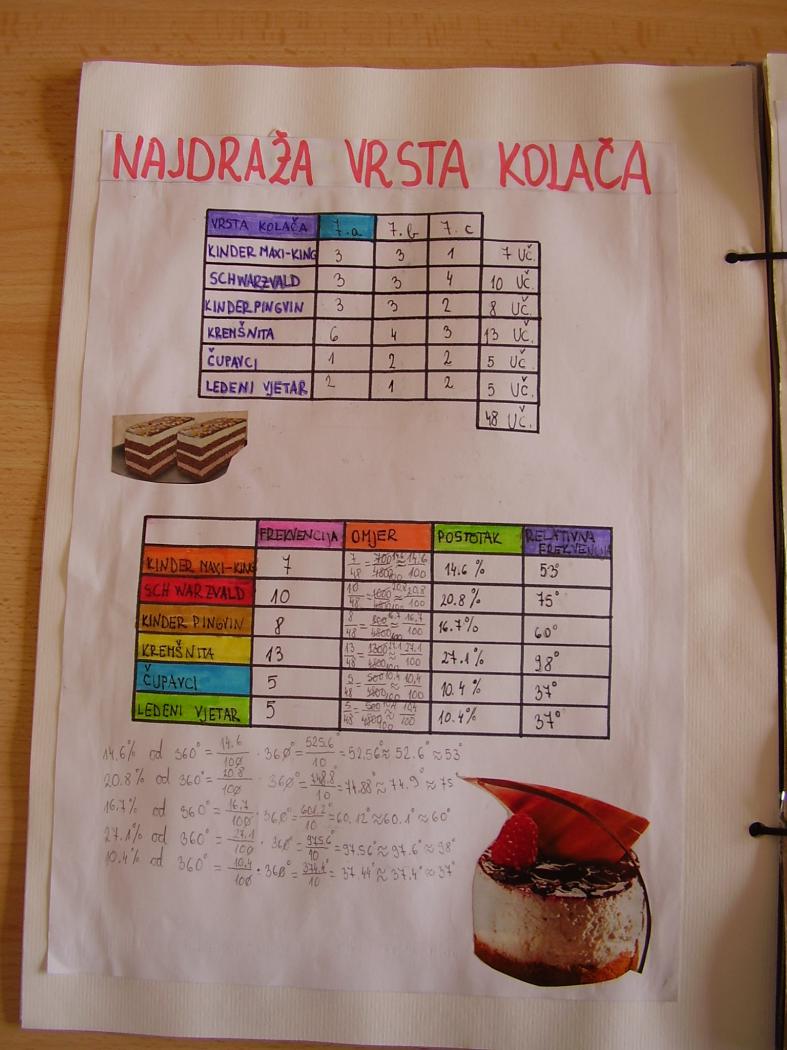 NAJDRAŽA VRSTA KOLAČA
VRSTA KOLAČA 7.a 7.b 7.c
KINDER MAXI-KING 3 3 1 7 UČ.
SCHWARZVALD 3 3 4 10 UČ.
KINDER PINGVIN 3 3 2 8 UČ.
KREMŠNITA 6 4 3 13 UČ.
ČUPAVCI 1 2 2 5 UČ.
LEDENI VJETAR 2 1 2 5 UČ.
48 UČ.
FREKVENCIJA OMJER POSTOTAK RELATIVNA FREKVENCIJA
KINDER MAXI-KING 7 7/48 = 700/4800 ≈ 14.6/100 14.6 % 53°
SCHWARZVALD 10 10/48 = 1000/4800 ≈ 20.8/100 20.8 % 75°
KINDER PINGVIN 8 8/48 = 800/4800 ≈ 16.7/100 16.7% 60°
KREMŠNITA 13 13/48 = 1300/4800 ≈ 27.1/100 27.1 % 98°
ČUPAVCI 5 5/48 = 500/4800 ≈ 10.4/100 10.4 % 37°
LEDENI VJETAR 5 5/48 = 500/4800 ≈ 10.4/100 10.4% 37°
14.6% od 360° = 14.6/100 · 360° = 525.6°/10 = 52.56° ≈ 52.6° ≈ 53°
20.8% od 360° = 20.8/100 · 360° = 748.8°/10 = 74.88° ≈ 74.9° ≈ 75°
16.7% od 360° = 16.7/100 · 360° = 601.2°/10 = 60.12° ≈ 60.1° ≈ 60°
27.1% od 360° = 27.1/100 · 360° = 975.6°/10 = 97.56° ≈ 97.6° ≈ 98°
10.4% od 360° = 10.4/100 · 360° = 374.4°/10 = 37.44° ≈ 37.4° ≈ 37°